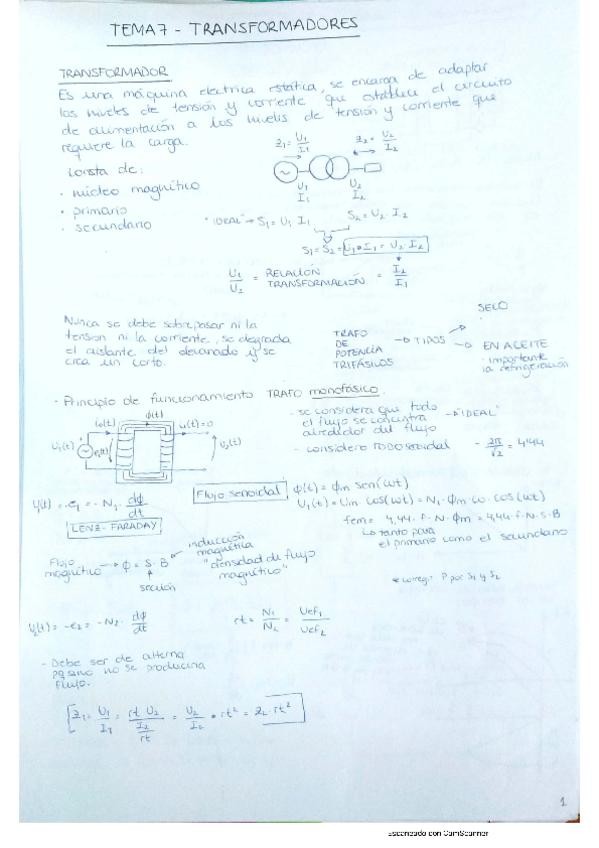 TEMA 7 - TRANSFORMADORES
TRANSFORMADOR
Es una máquina electrica estática, se encarga de adaptar
los niveles de tensión y corriente que establece el circuito
de alimentación a los niveles de tensión y corriente que
requiere la carga.
Consta de:
· núcleo magnético
· primario
· secundario
Z₁ = U₁/I₁
Z₂ = U₂/I₂
U₁
I₁
U₂
I₂
"IDEAL" → S₁ = U₁ I₁
S₂ = U₂ · I₂
S₁ = S₂ = U₁ · I₁ = U₂ · I₂
U₁/U₂ = RELACIÓN TRANSFORMACIÓN = I₂/I₁
Nunca se debe sobrepasar ni la
tension ni la corriente, se degrada
el aislante del devanado y se
crea un corto.
TRAFO
DE
POTENCIA
TRIFÁSICOS
→ TIPOS
SECO
EN ACEITE
· importante
la refrigeración
- Principio de funcionamiento TRAFO monofásico.
ϕ(t)
i₀(t)
i₂(t)=0
U₁(t)
e₁(t)
U₂(t)
- se considera que todo
el flujo se concentra
alrededor del flujo
→ "IDEAL"
- considero TODO senoidal
- 2π/√2 = 4,44
U₁(t) = -e₁ = - N₁ · dϕ/dt
LENZ - FARADAY
Flujo senoidal
ϕ(t) = ϕm sen(ωt)
U₁(t) = Um · cos(ωt) = N₁ · ϕm · ω · cos(ωt)
fem = 4,44 · f · N · ϕm = 4,44 · f · N · S · B
↳ tanto para
el primario como el secundario
Flujo
magnético → ϕ = S · B
sección
inducción
magnética
"densidad de flujo
magnético"
U₂(t) = -e₂ = - N₂ · dϕ/dt
rt = N₁/N₂ = Uef₁/Uef₂
- Debe ser de alterna
si no se produciría
flujo.
Z₁ = U₁/I₁ = rt U₂/(I₂/rt) = U₂/I₂ · rt² = Z₂ · rt²
1
Escaneado con CamScanner